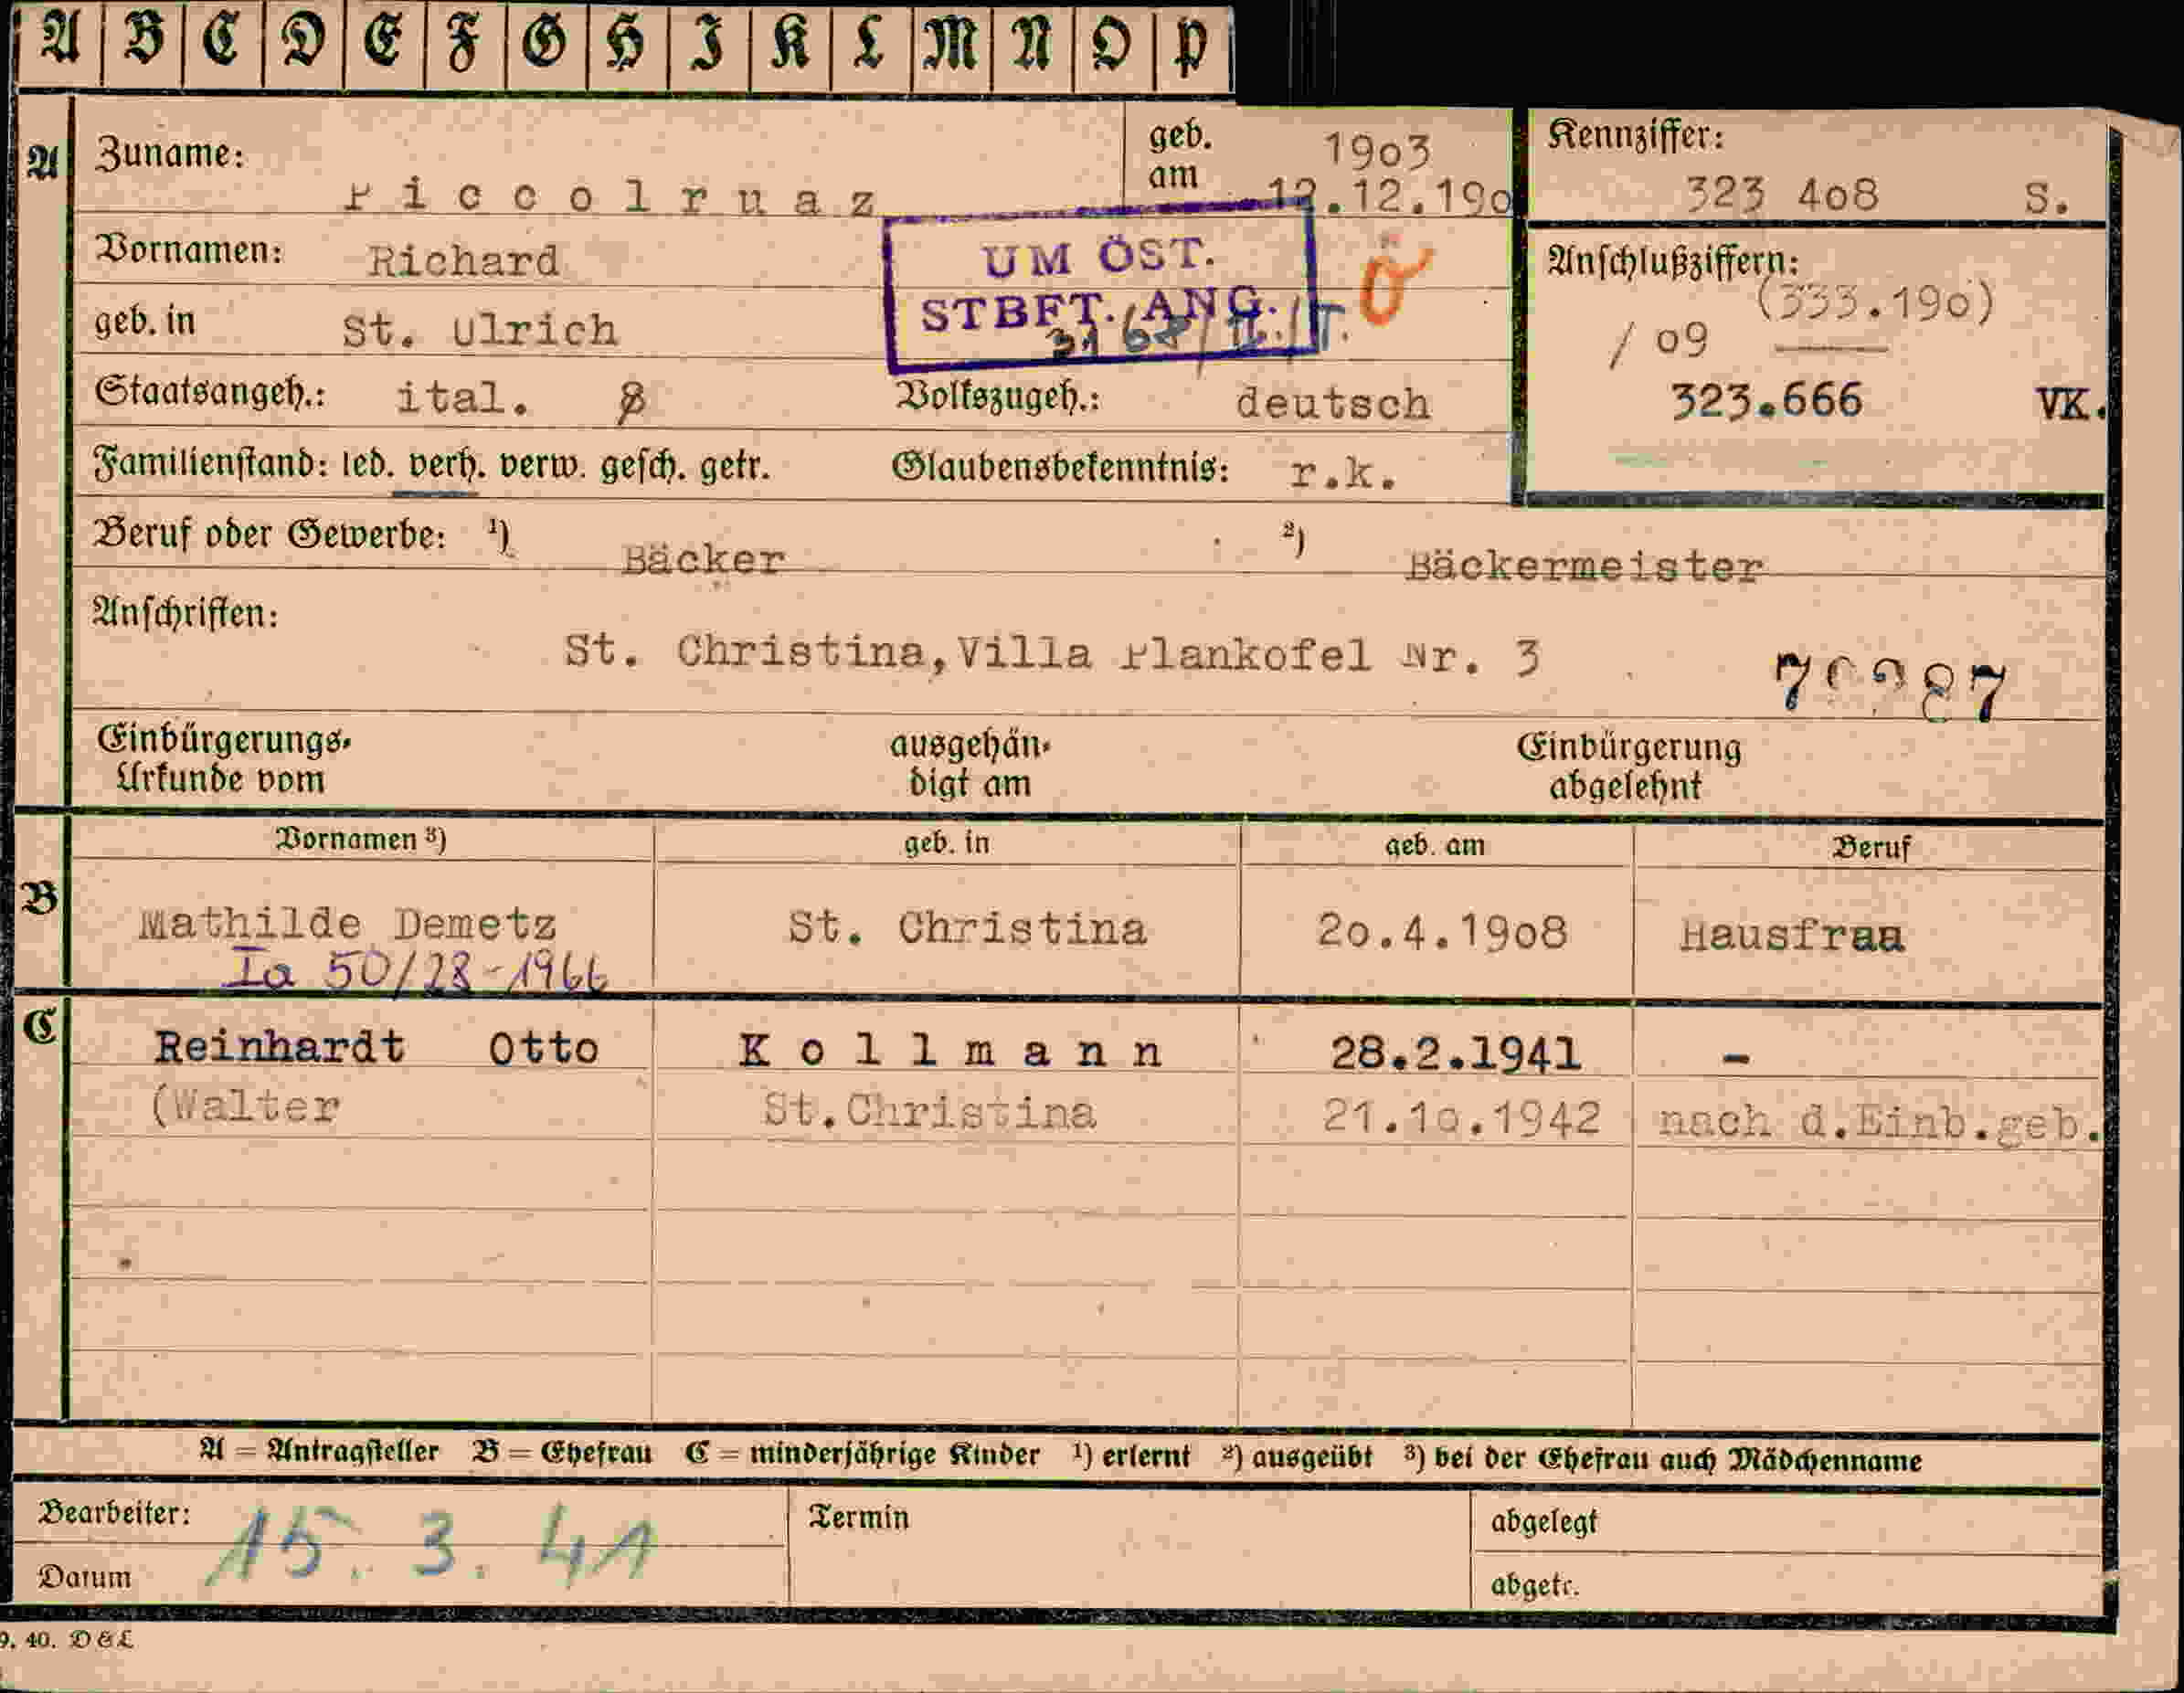 A B C D E F G H I K L M N O P
A Zuname: Piccolruaz geb. am 1903 12.12.190 Kennziffer: 323 408 S.
Vornamen: Richard UM ÖST. Ö Anschlußziffern:
STBFT. ANG. (333.190)
geb. in St. Ulrich / 09
Staatsangeh.: ital. Volkszugeh.: deutsch 323.666 VK.
Familienstand: led. verh. verw. gesch. getr. Glaubensbekenntnis: r.k.
Beruf oder Gewerbe: ¹) Bäcker ²) Bäckermeister
Anschriften:
St. Christina, Villa Plankofel Nr. 3
Einbürgerungs- ausgehän- Einbürgerung
Urkunde vom digt am abgelehnt
Vornamen ³) geb. in geb. am Beruf
B Mathilde Demetz St. Christina 20.4.1908 Hausfrau
Ia 50/28-1966
C Reinhardt Otto Kollmann 28.2.1941 -
(Walter St.Christina 21.10.1942 nach d.Einb.geb.
A = Antragsteller B = Ehefrau C = minderjährige Kinder ¹) erlernt ²) ausgeübt ³) bei der Ehefrau auch Mädchenname
Bearbeiter: Termin abgelegt
15. 3. 41
Datum abgetr.
9. 40. D & L